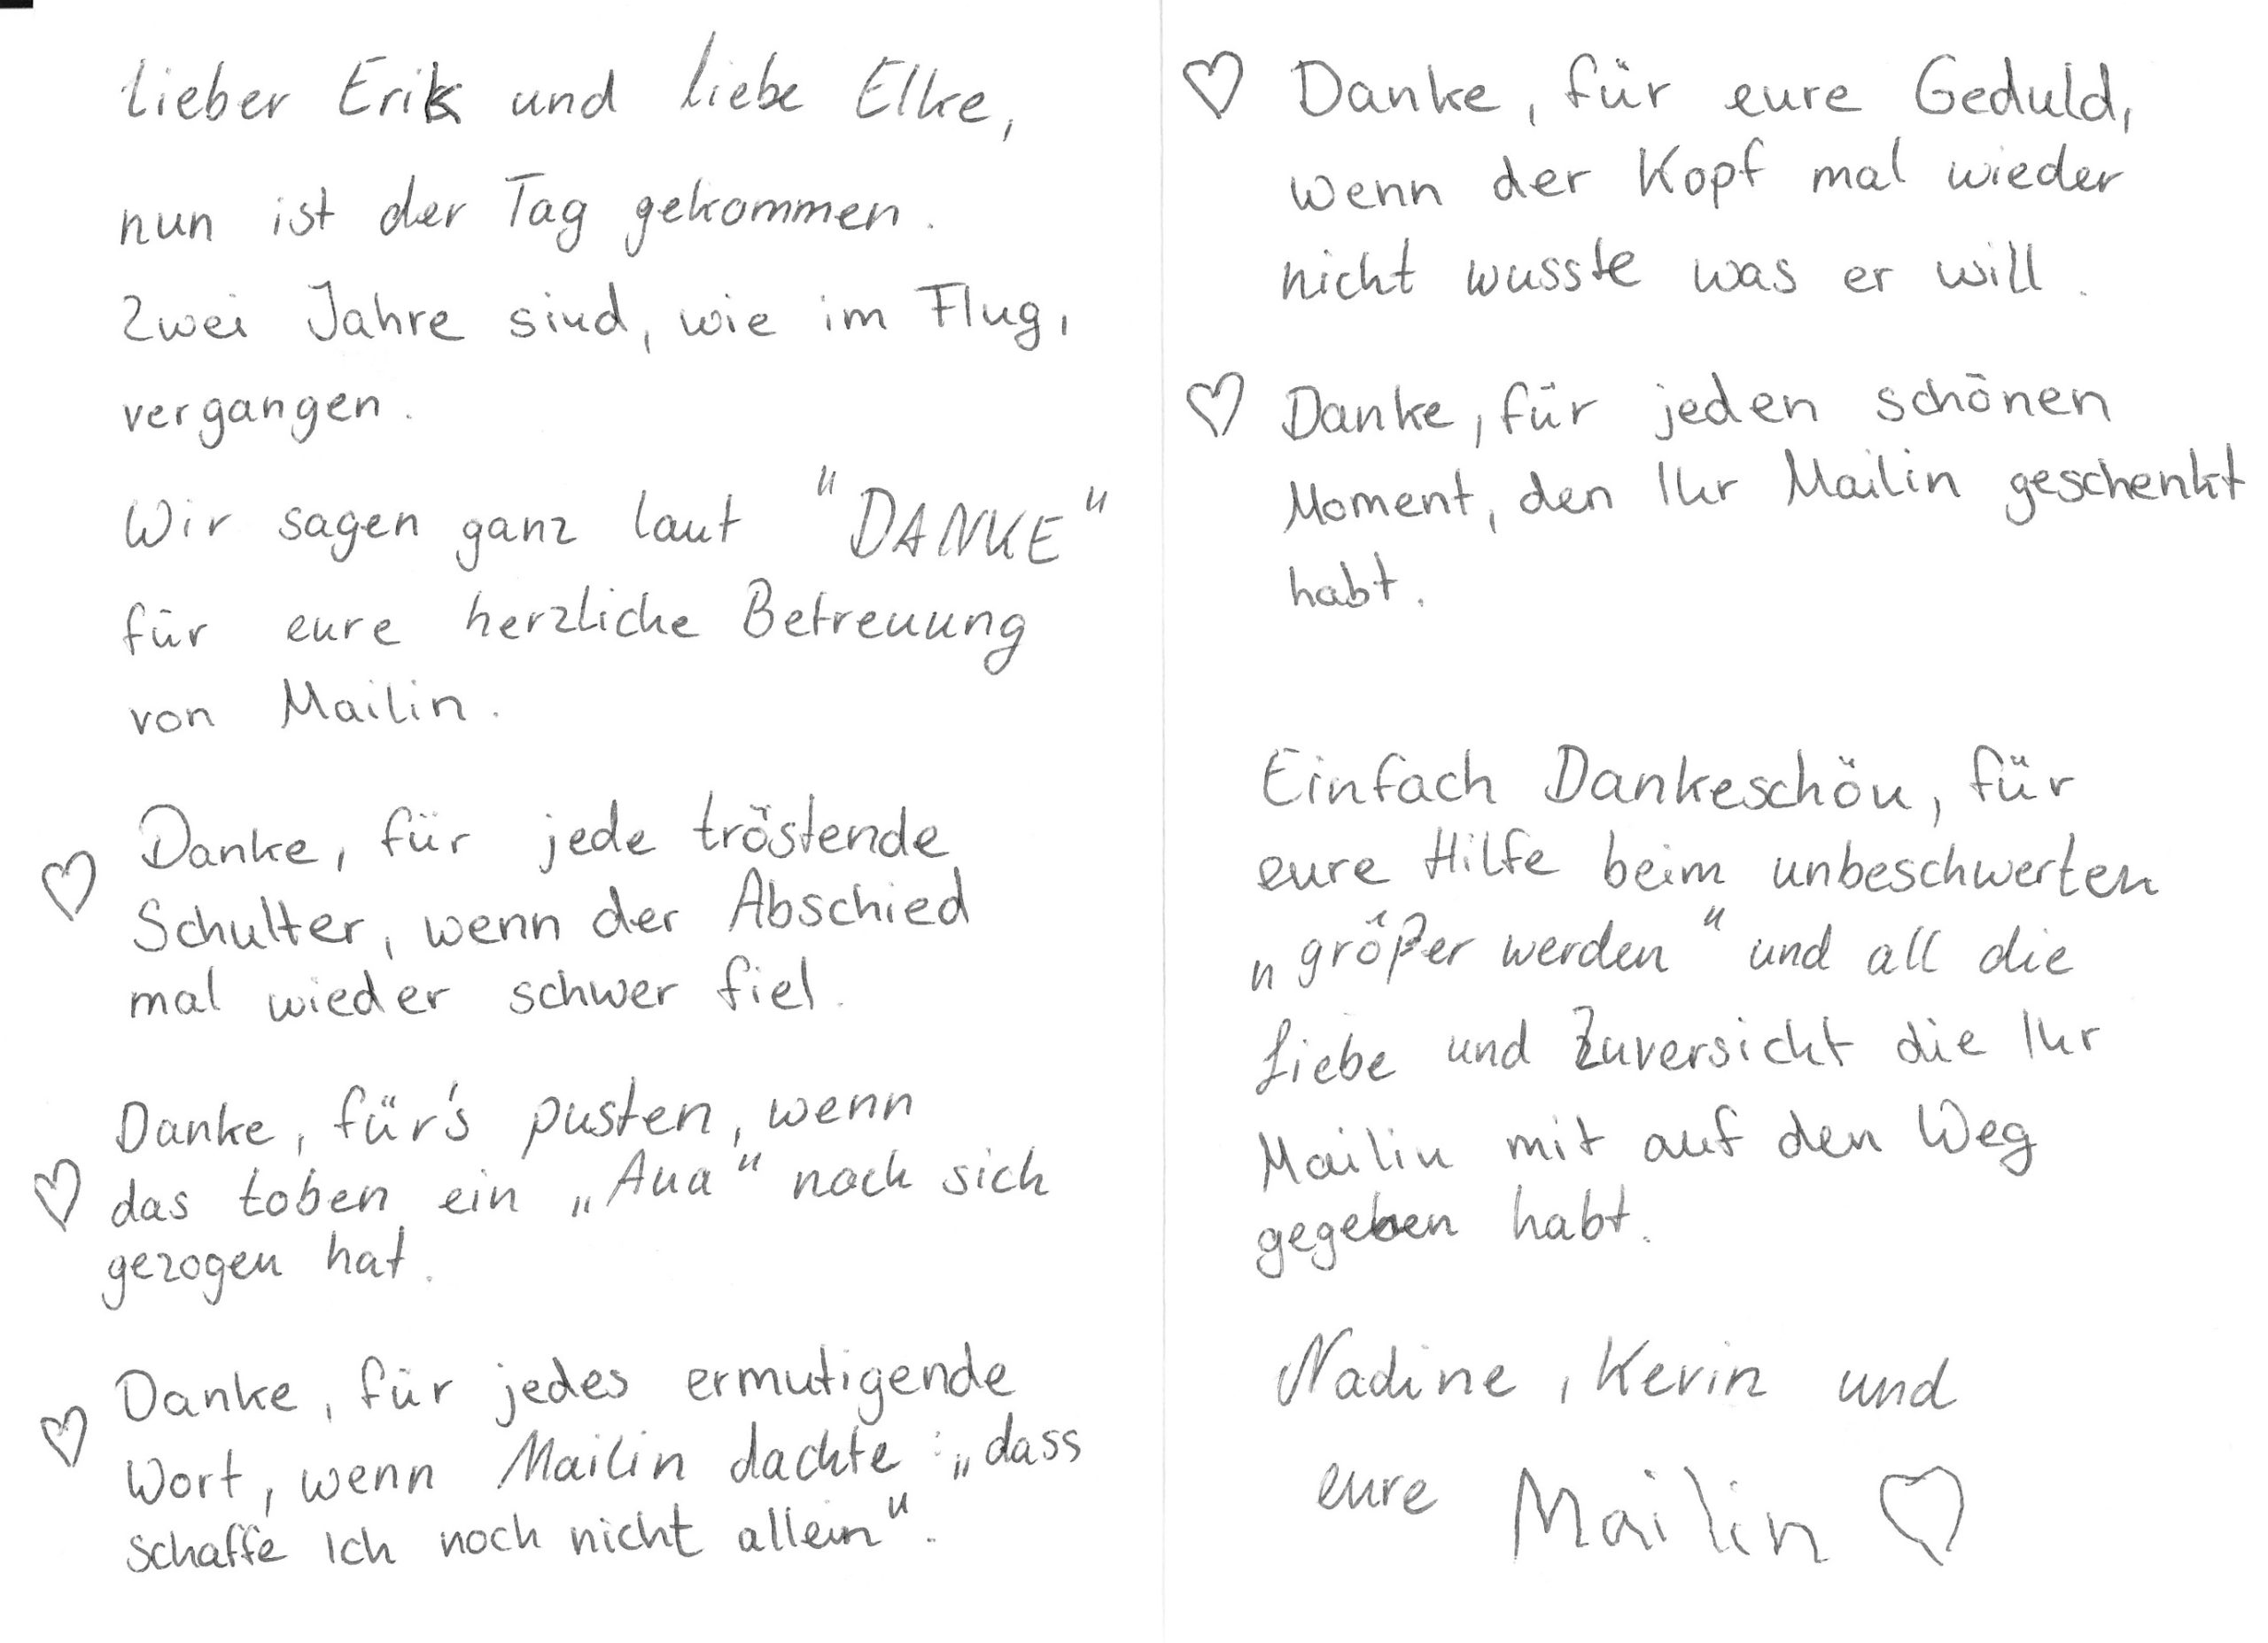 lieber Erik und liebe Elke,
nun ist der Tag gekommen.
Zwei Jahre sind, wie im Flug,
vergangen.
Wir sagen ganz laut "DANKE"
für eure herzliche Betreuung
von Mailin.
♡ Danke, für jede tröstende
Schulter, wenn der Abschied
mal wieder schwer fiel.
♡ Danke, für's pusten, wenn
das toben ein „Aua" nach sich
gezogen hat.
♡ Danke, für jedes ermutigende
Wort, wenn Mailin dachte: „dass
schaffe ich noch nicht allein".
♡ Danke, für eure Geduld,
wenn der Kopf mal wieder
nicht wusste was er will.
♡ Danke, für jeden schönen
Moment, den Ihr Mailin geschenkt
habt.
Einfach Dankeschön, für
eure Hilfe beim unbeschwerten
„größer werden" und all die
Liebe und Zuversicht die Ihr
Mailin mit auf den Weg
gegeben habt.
Nadine, Kevin und
eure Mailin ♡